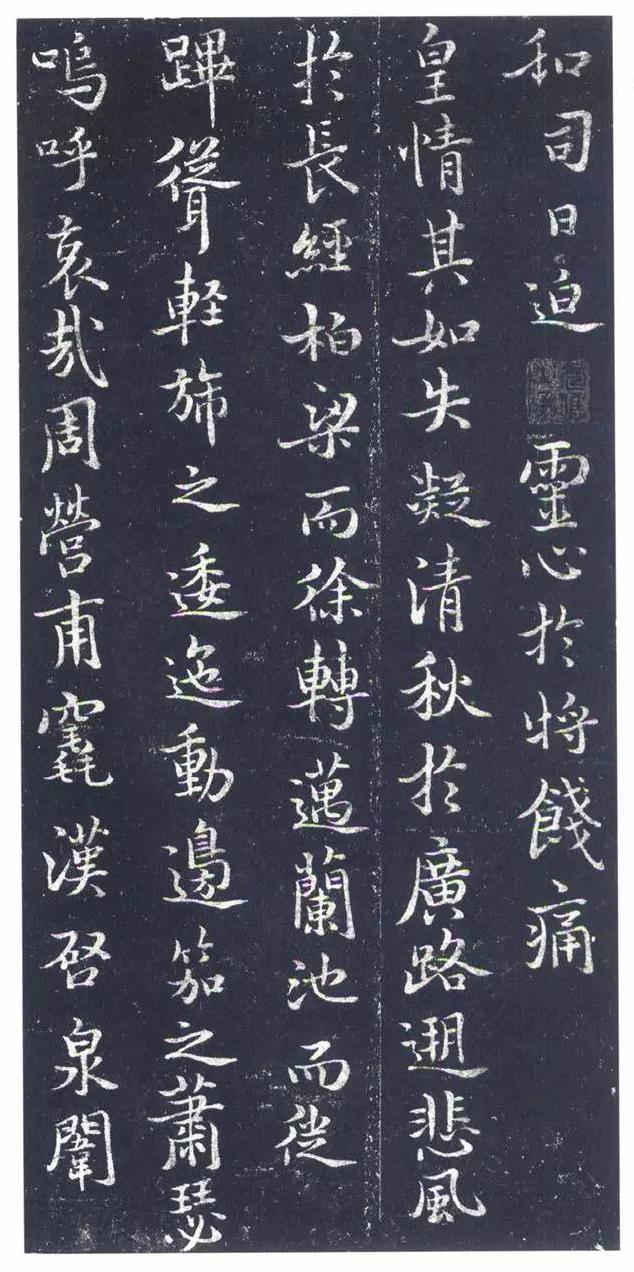 和司日迫靈心於將餞痛
皇情其如失凝清秋於廣路遡悲風
於長經柏梁而徐轉邁蘭池而從
蹕聳輕旆之逶迤動邊笳之蕭瑟
嗚呼哀哉周營甫竁漢啓泉闈